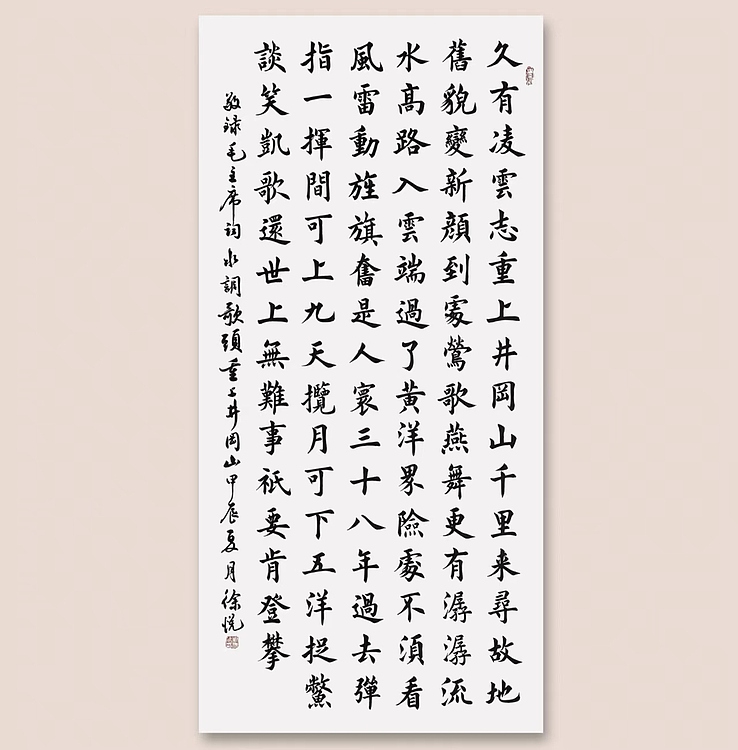 久有凌雲志重上井岡山千里来尋故地
舊貌變新顔到處鶯歌燕舞更有潺潺流
水高路入雲端過了黄洋界險處不須看
風雷動旌旗奮是人寰三十八年過去彈
指一揮間可上九天攬月可下五洋捉鱉
談笑凱歌還世上無難事衹要肯登攀
敬録毛主席詞水調歌頭重上井岡山甲辰夏月徐悦